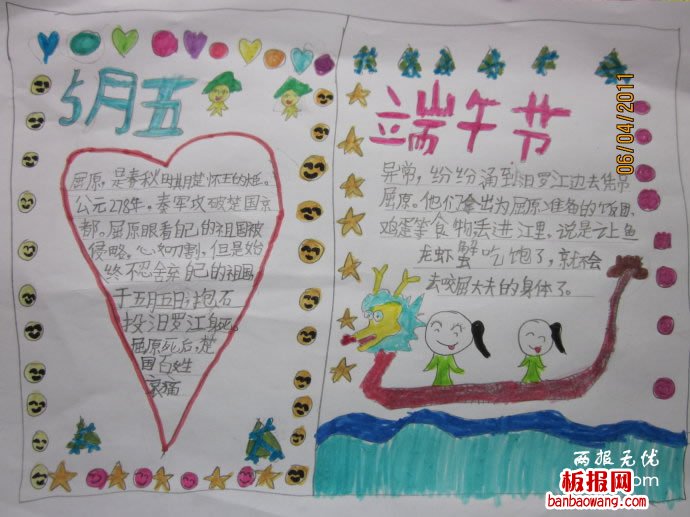 5月五
屈原，是春秋时期楚怀王的大臣。
公元278年，秦军攻破楚国京
都。屈原眼看自己的祖国被
侵略，心如刀割，但是始
终不忍舍弃自己的祖国，
于五月五日，抱石
投汨罗江身死。
屈原死后，楚
国百姓
哀痛
端午节
异常，纷纷涌到汨罗江边去凭吊
屈原。他们拿出为屈原准备的饭团、
鸡蛋等食物丢进江里，说是让鱼
龙虾蟹吃饱了，就不会
去咬屈大夫的身体了。
06/04/2011
两报无优
板报网
banbaowang.com